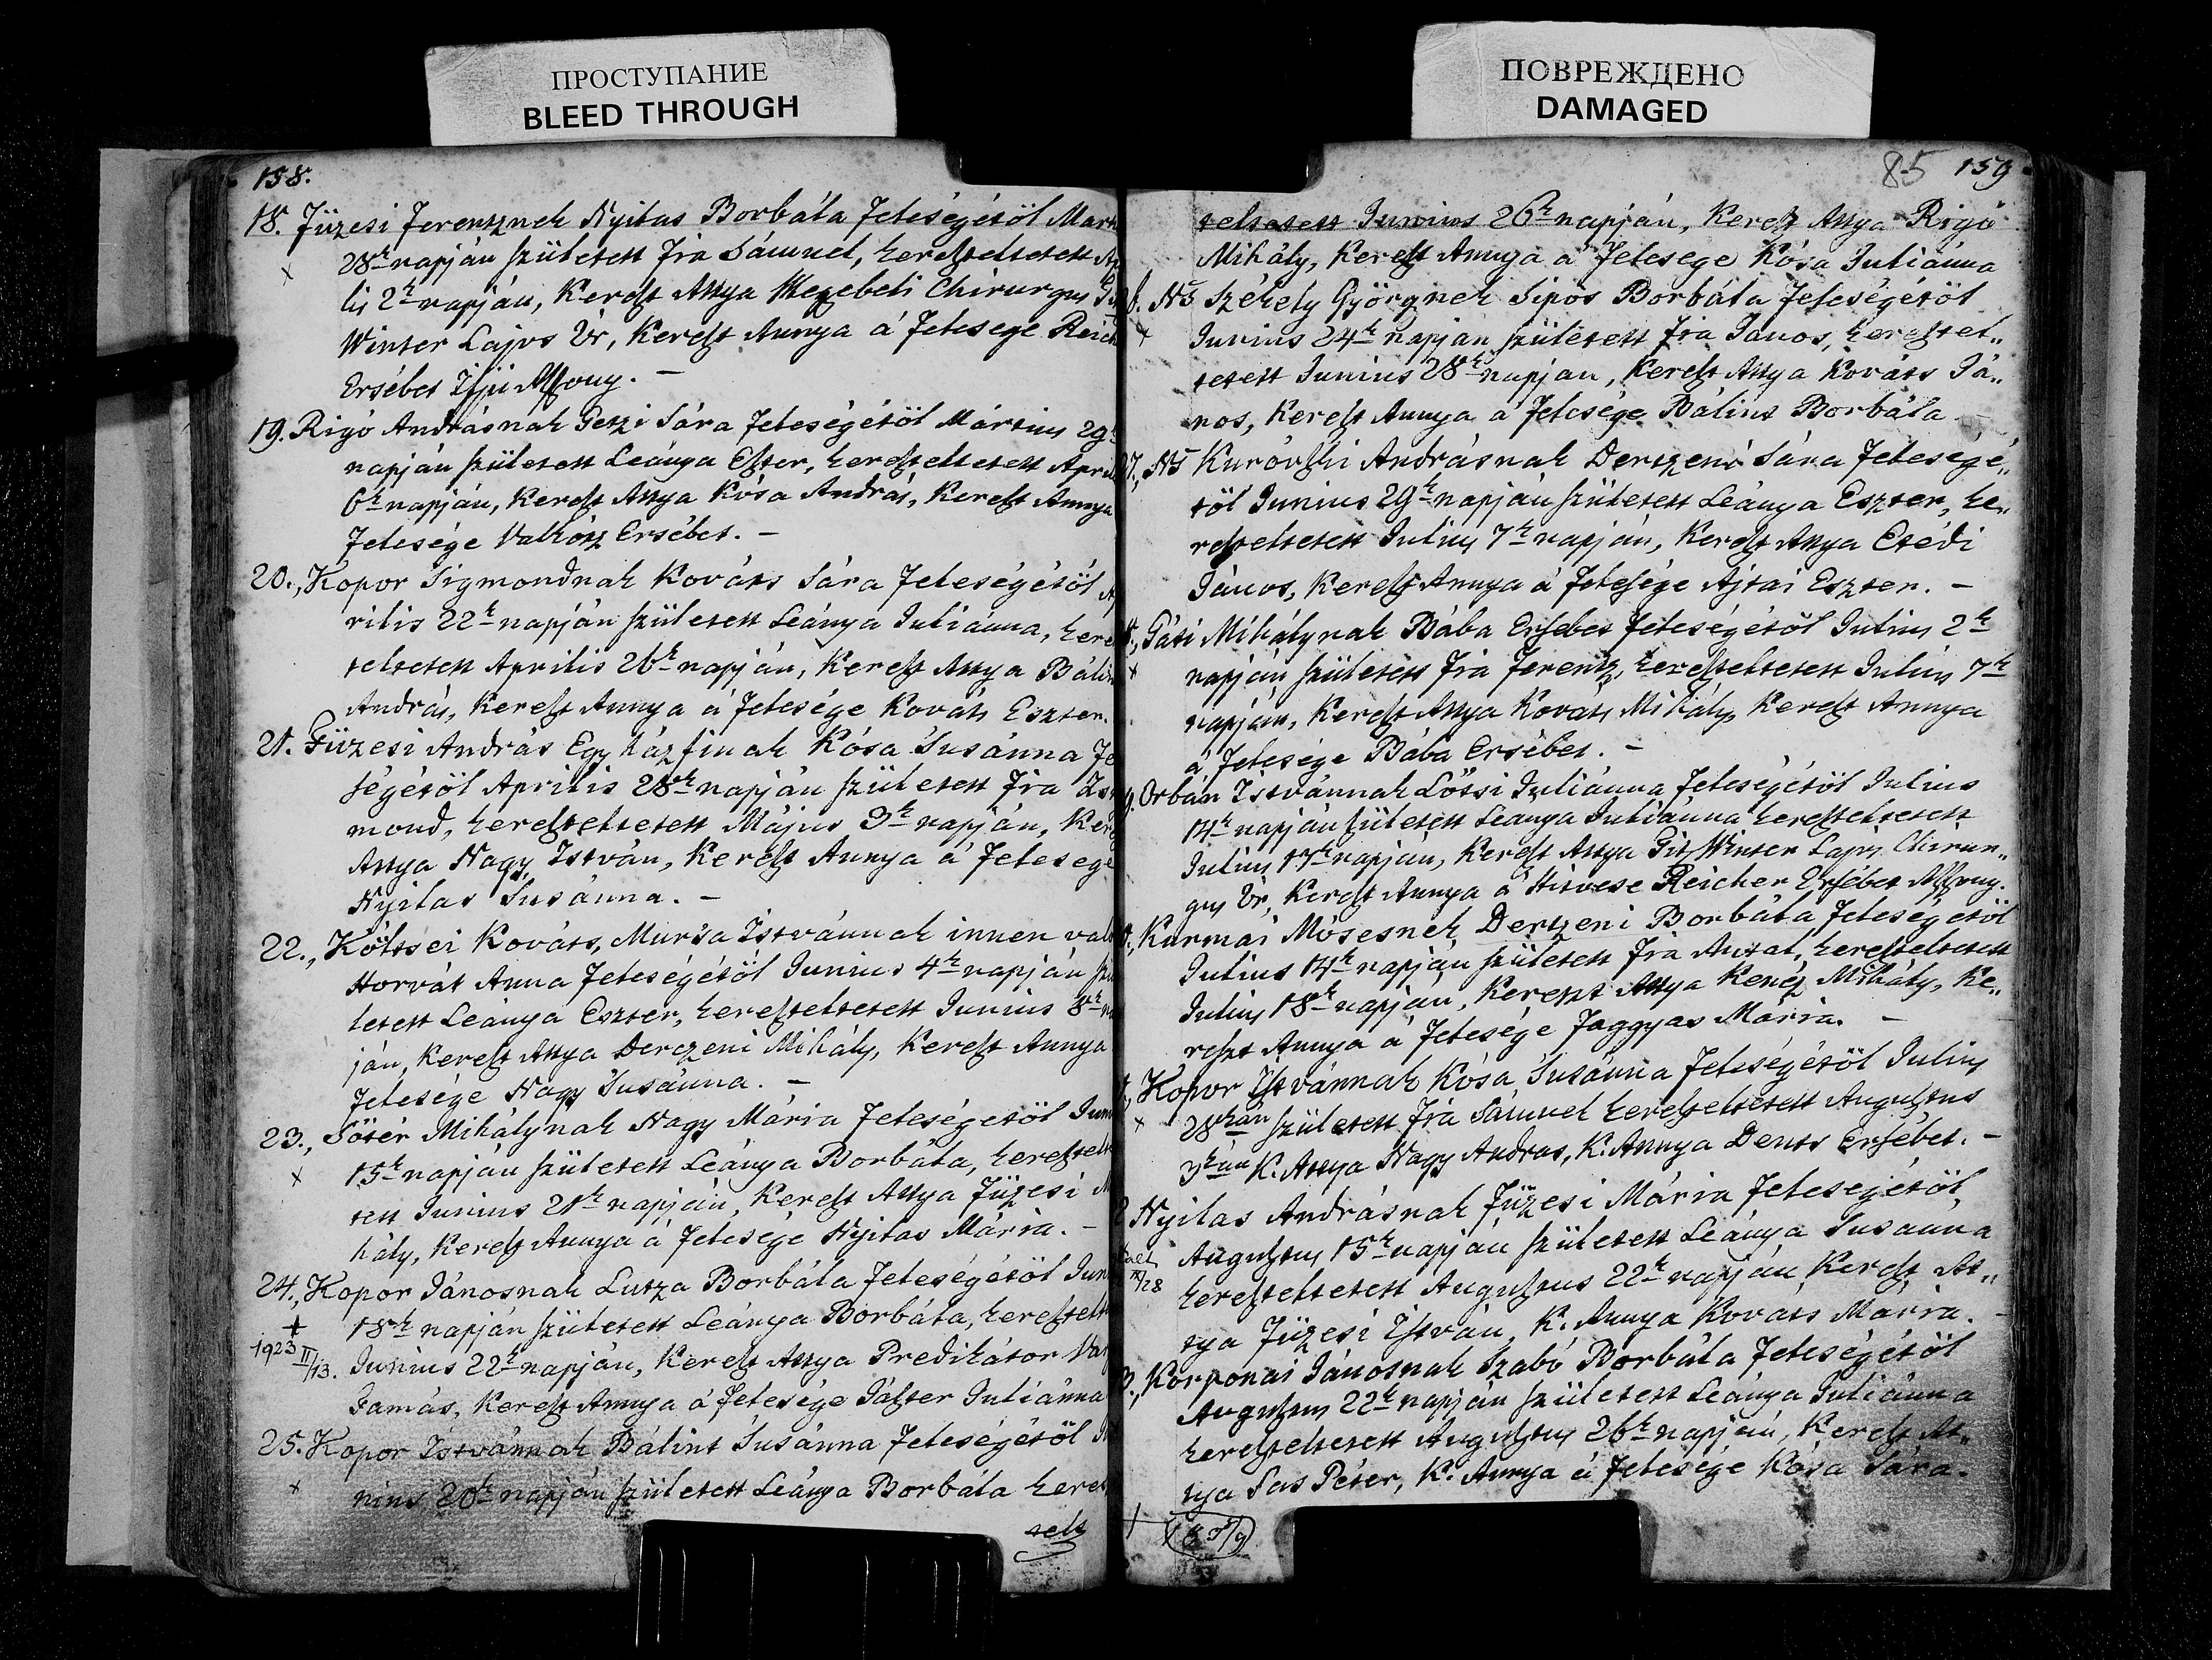 ПРОСТУПАНИЕ
BLEED THROUGH
158.
18. Füzesi Ferentznek Nyilas Borbála feleségétöl Mart
28k napján született fia Sámuel, kereszteltetett Ap
lis 2k napján, Kereszt Attya Mezebeli Chirurgus
Winter Lajos Ur, Kereszt Annya á felesege Reich
Ersébet Ifjú Aſſony. –
19. Rigó Andrásnak Petzi Sára feleségétöl Mártius 29k
napján született Leánya Eszter, kereszteltetett Apri
6k napján, Kereszt Attya Kósa András, Kereszt Annya
felesége Valkósz Ersébet. –
20., Kopor Sigmondnak Kováts Sára feleségétöl Ap
rilis 22k napján született Leánya Juliánna, kere
teltetett Aprilis 26k napján, Kereszt Attya Bálin
András, Kereszt Annya á felesége Kováts Eszter.
21. Füzesi András Egyházfinak Kósa Susánna fe
ségétöl Aprilis 28k napján született fia Zsi
mond, kereszteltetett Május 3k napján, Ker
Attya Nagy István, Kereszt Annya á felesege
Nyilas Susánna. –
22., Költsei Kováts, Mursa Istvánnak innen való
Horvát Anna feleségétöl Junius 4k napján szü
letett Leánya Eszter, kereszteltetett Junius 8k na
ján, Kereszt Attya Derczeni Mihály, Kereszt Annya
felesége Nagy Susánna. –
23., Sötér Mihálynak Nagy Mária feleségetöl Juni
x 15k napján született Leánya Borbála, keresztelte
tett Junius 21k napján, Kereszt Attya Füzesi Mi
hály, Kereszt Annya á felesége Nyilas Mária. –
24., Kopor Jánosnak Lutza Borbála feleségétöl Juni
+ 18k napján született Leánya Borbála, keresztelte
1923 II/13. Junius 22k napján, Kereszt Attya Predikátor
Tamás, Kereszt Annya á felesége Pálfter Juliánna
25. Kopor Istvánnak Bálint Susánna feleségétöl Ju
x nius 20k napján született Leánya Borbála keres
telt
ПОВРЕЖДЕНО
DAMAGED
85 159
teltetett Junius 26k napján, Kereszt Attya Rigó
Mihály, Kereszt Annya á felesege Kósa Juliánna
6. Ns Székely Györgynek Sipos Borbála feleségétöl
x Junius 24k napján született fia János, keresztel„
tetett Junius 28k napján, Kereszt Attya Kováts Já„
nos, Kereszt Annya á felesége Bálint Borbála
27., Ns Kuróvszki Andrásnak Dertzeni Sára feleségé„
töl Junius 29k napján született Leánya Eszter, ke„
reszteltetett Julius 7k napján, Kereszt Attya Etédi
János, Kereszt Annya á felesége Ajtai Eszter. –
8., Páti Mihálynak Bába Ersebet feleségétöl Julius 2k
x napján született fia Ferentz, kereszteltetett Julius 7k
napján, Kereszt Attya Kováts Mihály, Kereszt Annya
á felesége Bába Ersébet. –
9. Orbán Istvánnak Lőssi Juliánna feleségétöl Julius
14k napján született Leánya Juliánna kereszteltetett
Julius 17k napján, Kereszt Attya Tit. Winter Lajos Chirur„
gus Ur, Kereszt Annya á Hitvese Reicher Ersébet Aſſony.
Kurmai Mósesnek Dertzeni Borbála feleségétöl
Julius 14k napján született fia Antal, kereszteltetett
Julius 18k napján, Kereszt Attya Kenéz Mihály, Ke„
reszt Annya á felesége Faggyas Mária. –
Kopor Istvánnak Kósa Susánna feleségétöl Julius
x 28kán született fia Sámuel kereszteltetett Augustus
3kán K. Attya Nagy András, K. Annya Dents Ersébet. –
2 Nyilas Andrásnak Füzesi Mária feleségétöl
Augustus 15k napján született Leánya Susanna
kereszteltetett Augustus 22k napján Kereszt At„
tya Füzesi István, K. Annya Kováts Mária. –
3., Korponai Jánosnak Szabó Borbála feleségétöl
Augustus 22k napján született Leánya Juliánna
kereszteltetett Augustus 26k napján, Kereszt At„
tya Sas Péter, K. Annya á felesége Kósa Sára.